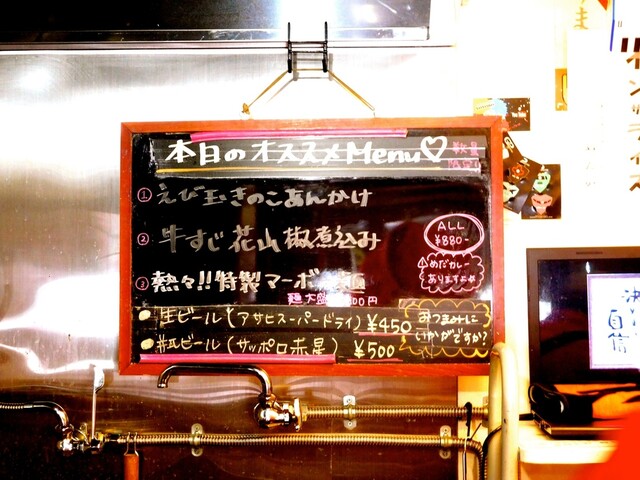 本日のオススメMenu♡
数量
限定!!
① えび玉きのこあんかけ
② 牛すじ花山椒煮込み
ALL
¥880-
③ 熱々!!特製マーボ麺
めだカレー
ありますよ
生ビール(アサヒスーパードライ) ¥450
おつまみに
いかがですか?
ビール(サッポロ赤星) ¥500
自信